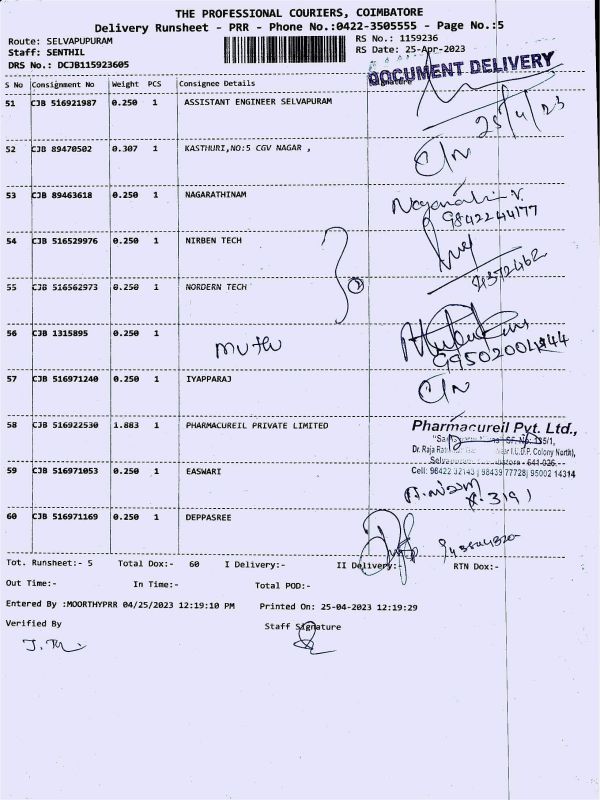 THE PROFESSIONAL COURIERS, COIMBATORE
Delivery Runsheet - PRR - Phone No.:0422-3505555 - Page No.:5
Route: SELVAPUPURAM RS No.: 1159236
Staff: SENTHIL RS Date: 25-Apr-2023
DRS No.: DCJB115923605
DOCUMENT DELIVERY
S No Consignment No Weight PCS Consignee Details Signature
51 CJB 516921987 0.250 1 ASSISTANT ENGINEER SELVAPURAM
25/4/23
52 CJB 89470502 0.307 1 KASTHURI,NO:5 CGV NAGAR ,
C/N
53 CJB 89463618 0.250 1 NAGARATHINAM
9842244177
54 CJB 516529976 0.250 1 NIRBEN TECH
55 CJB 516562973 0.250 1 NORDERN TECH
56 CJB 1315895 0.250 1
muthu
57 CJB 516971240 0.250 1 IYAPPARAJ
C/N
58 CJB 516922530 1.883 1 PHARMACUREIL PRIVATE LIMITED
Pharmacureil Pvt. Ltd.,
SF. No: 135/1,
Dr. Raja I.U.D.P. Colony North),
641 026.
Cell: 98422 32143 | 98439 77728| 95002 14314
59 CJB 516971053 0.250 1 EASWARI
60 CJB 516971169 0.250 1 DEPPASREE
Tot. Runsheet:- 5 Total Dox:- 60 I Delivery:- II Delivery:- RTN Dox:-
Out Time:- In Time:- Total POD:-
Entered By :MOORTHYPRR 04/25/2023 12:19:10 PM Printed On: 25-04-2023 12:19:29
Verified By Staff Signature